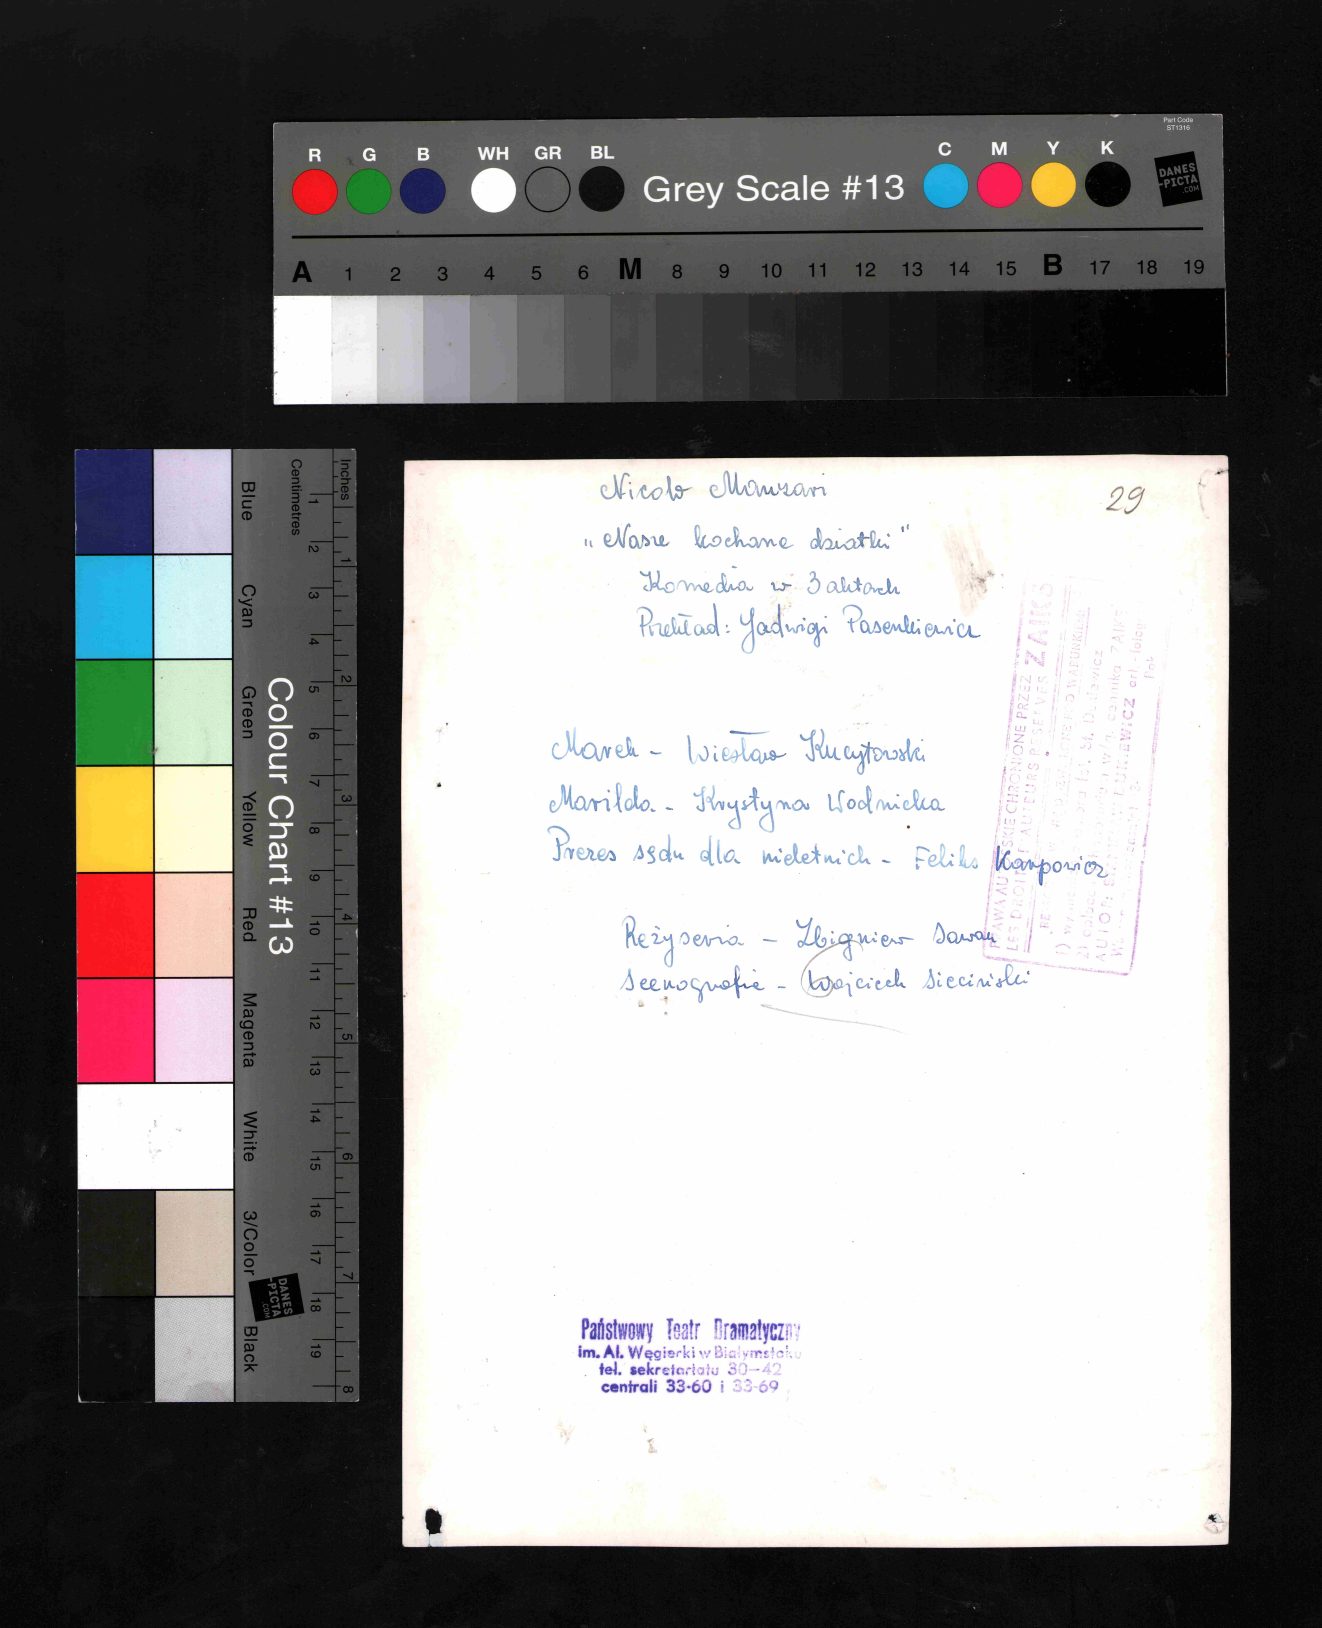 Part Code
ST1316
R G B WH GR BL
C M Y K
Grey Scale #13
DANES
-PICTA
.COM
A 1 2 3 4 5 6 M 8 9 10 11 12 13 14 15 B 17 18 19
Inches
Centimetres
1 2 3 4 5 6 7 8 9 10 11 12 13 14 15 16 17 18 19
1 2 3 4 5 6 7 8
Colour Chart #13
Blue
Cyan
Green
Yellow
Red
Magenta
White
3/Color
Black
DANES
-PICTA
.COM
29
Nicolo Manzari
„Nasze kochane dziatki"
Komedia w 3 aktach
Przekład: Jadwigi Pasenkiewicz
Marek - Wiesław
Marilda - Krystyna Wodnicka
Prezes sądu dla nieletnich - Feliks Karpowicz
Reżyseria - Zbigniew Sawan
Scenografia - Wojciech Sieciński
CHRONIONE PRZEZ ZAIKS
LES DROITS AUTEURS
AUTOR:
Państwowy Teatr Dramatyczny
im. Al. Węgierki w Białymstoku
tel. sekretariatu 30-42
centrali 33-60 i 33-69